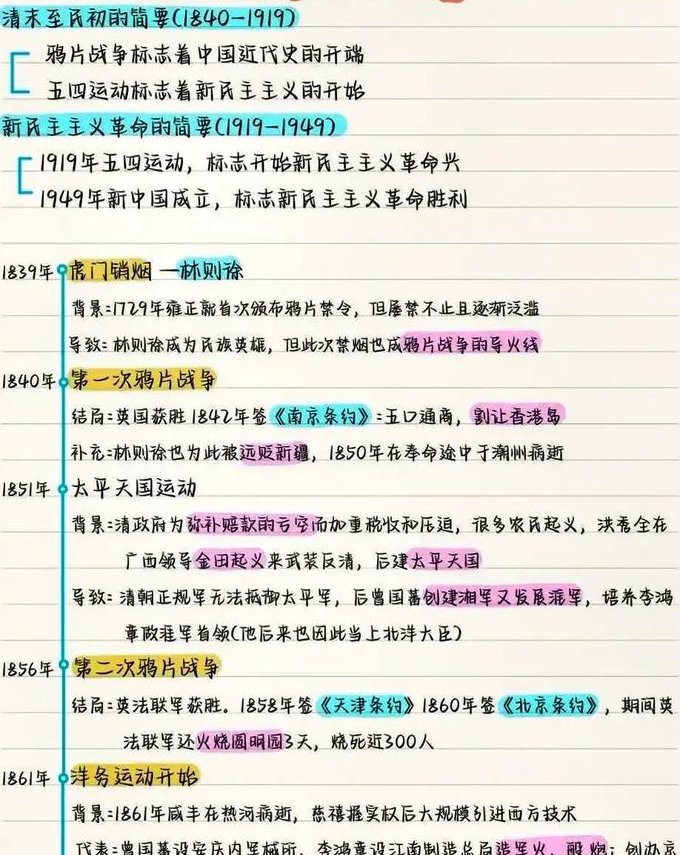 清末至民初的简要(1840-1919)
鸦片战争标志着中国近代史的开端
五四运动标志着新民主主义的开始
新民主主义革命的简要(1919-1949)
1919年五四运动，标志开始新民主主义革命兴
1949年新中国成立，标志新民主主义革命胜利
1839年 虎门销烟 —林则徐
背景:1729年雍正就首次颁布鸦片禁令，但屡禁不止且逐渐泛滥
导致:林则徐成为民族英雄，但此次禁烟也成鸦片战争的导火线
1840年 第一次鸦片战争
结局:英国获胜 1842年签《南京条约》:五口通商，割让香港岛
补充:林则徐也为此被远贬新疆，1850年在奉命途中于潮州病逝
1851年 太平天国运动
背景:清政府为弥补赔款的亏空而加重税收和压迫，很多农民起义，洪秀全在
广西领导金田起义来武装反清，后建太平天国
导致:清朝正规军无法抵御太平军，后曾国蕃创建湘军又发展淮军，培养李鸿
章做淮军首领(他后来也因此当上北洋大臣)
1856年 第二次鸦片战争
结局:英法联军获胜。1858年签《天津条约》1860年签《北京条约》，期间英
法联军还火烧圆明园3天，烧死近300人
1861年 洋务运动开始
背景:1861年咸丰在热河病逝，慈禧握实权后大规模引进西方技术
代表:曾国蕃设安庆内军械所，李鸿章设江南制造总局造军火、船炮;创办京